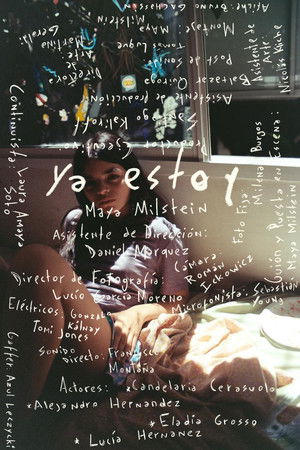 ya estoy
Maya Milstein
Asistente de Dirección:
Daniel Marquez
Director de Fotografía:
Lucio García Moreno
Cámara:
Román
Eléctricos: Gonzalo
Kálnay
Tomi Jones
Microfonista: Sebastián
Young
Sonido
Directo: Francisco
Montaña
Actores: *Candelaria Cerasuolo
*Alejandro Hernandez
*Eladia Grosso
*Lucía Hernanez
Gaffer: Azul Leczycki
Continuista: Laura Amaya
Soto
Productor Ejecutivo
Santiago Kalikoff
Asistente de producción:
Baltazar Quiroga
Post de Sonido:
Tomas Luque
Montaje:
Maya
Milstein
Directora
de
Arte:
Martina
Afiche: Bruno
Asistente de
Arte:
Nicolas
Foto Fija:
Milena Burgos
Guión y Puesta en Escena:
Maya Milstein